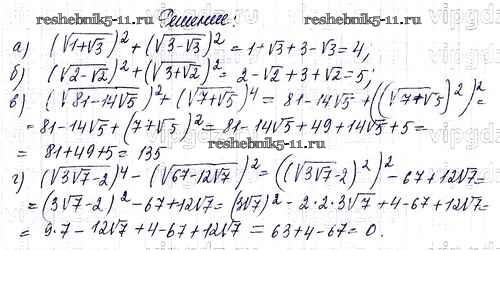 reshebnik5-11.ru Решение: reshebnik5-11.ru
а) (√(1+√3))² + (√(3-√3))² = 1+√3+3-√3 = 4;
б) (√(2-√2))² + (√(3+√2))² = 2-√2+3+√2 = 5;
в) (√(81-14√5))² + (√(7+√5))⁴ = 81-14√5 + ((√(7+√5))²)² =
= 81-14√5 + (7+√5)² = 81-14√5 + 49 + 14√5 + 5 =
= 81+49+5 = 135 reshebnik5-11.ru
г) (√(3√7-2))⁴ - (√(67-12√7))² = ((√(3√7-2))²)² - 67+12√7 =
= (3√7-2)² - 67+12√7 = (3√7)² - 2·2·3√7 + 4-67+12√7 =
= 9·7 - 12√7 + 4-67+12√7 = 63+4-67 = 0.